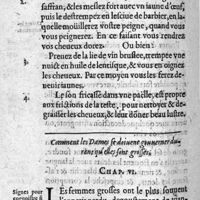 saffran, & les meslez fort auec vn iaune d'œuf,
puis le destrempez en lesciue de barbier, en la-
quelle moüillerez vostre peigne, quand vous
vous peignerez. En ce faisant vous rendrez
vos cheueux dorez. Ou bien:
Prenez de la lie de vin bruslee, trempee vne
nuict en huile de lentisque, & vous en oignez
les cheueux. Par ce moyen vous les ferez de-
uenir iaunes.
Le son fricassé dans vne paelle, est propre
aux frictions de la teste, pour nettoyer & de-
graisser les cheueux, & leur donner beau lustre.
Comment les Dames se doiuent gouuerner du-
rant qu'elles sont grosses.
CHAP. VI.
Signes pour
cognoistre si
LEs femmes grosses ont le plus souuent